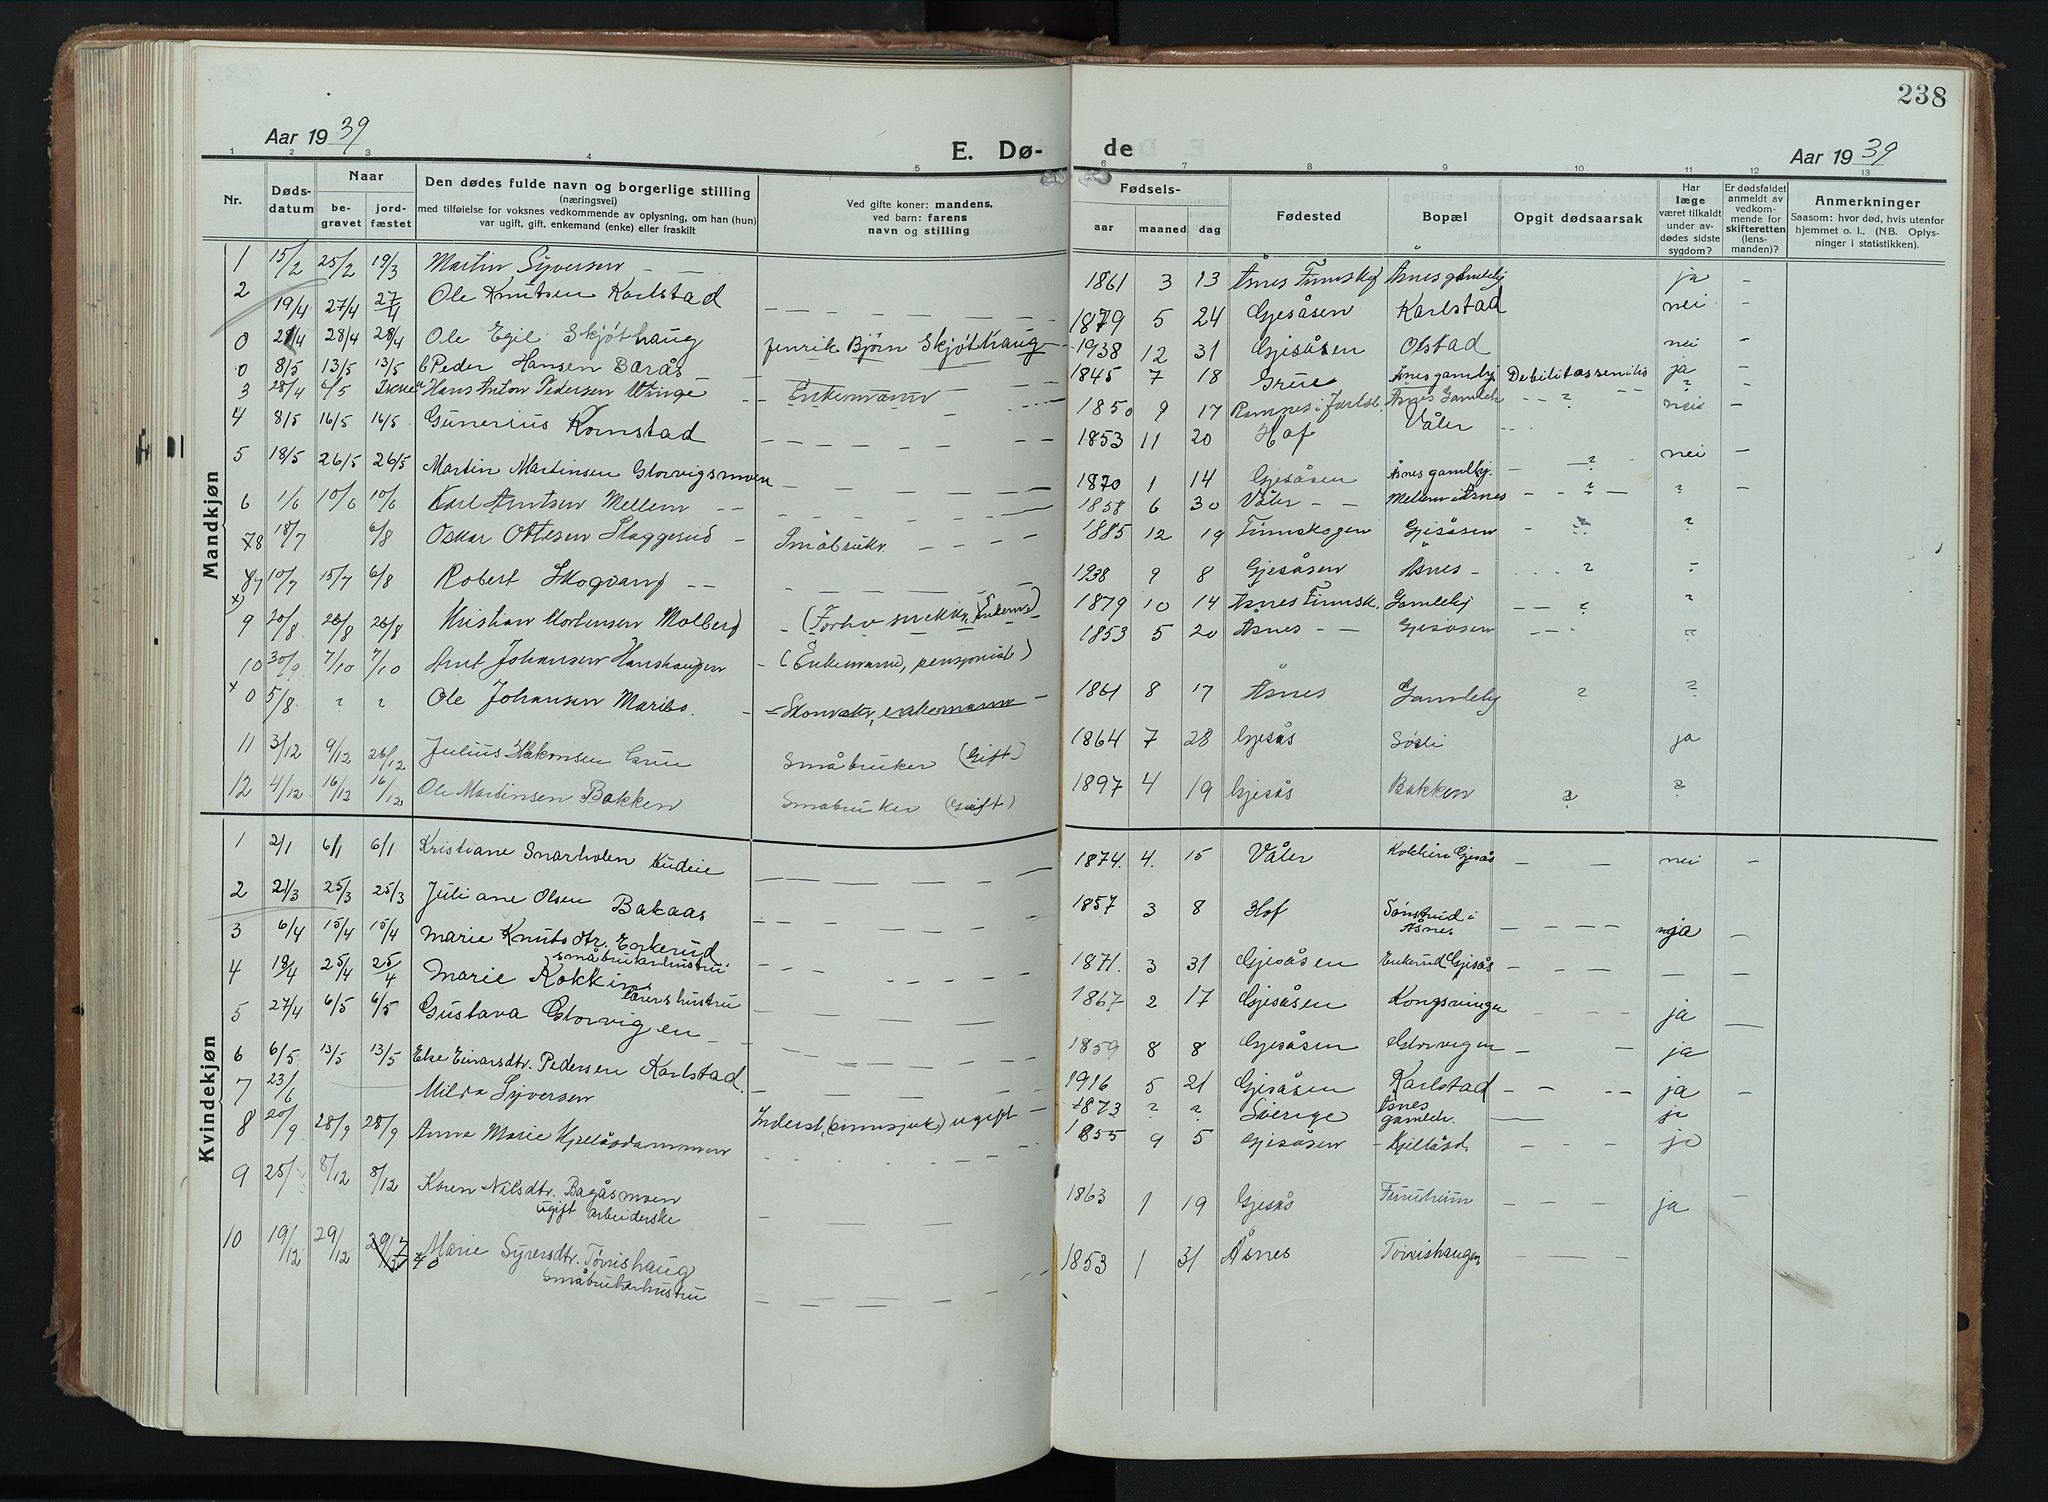 238
Aar 19 39
E. Dø-
de
Aar 19 39
1 2 3 4 5 6 7 8 9 10 11 12 13
Nr.
Døds-
datum
Naar
be-
gravet
jord-
fæstet
Den dødes fulde navn og borgerlige stilling
(næringsvei)
med tilføielse for voksnes vedkommende av oplysning, om han (hun)
var ugift, gift, enkemand (enke) eller fraskilt
Ved gifte koner: mandens,
ved barn: farens
navn og stilling
Fødsels-
aar maaned dag
Fødested
Bopæl
Opgit dødsaarsak
Har
læge
været tilkaldt
under av-
dødes sidste
sygdom?
Er dødsfaldet
anmeldt av
vedkom-
mende for
skifteretten
(lens-
manden)?
Anmerkninger
Saasom: hvor død, hvis utenfor
hjemmet o. l.. (NB. Oplys-
ninger i statistikken).
Mandkjøn
1 15/2 25/2 19/3 Martin Syversen - - 1861 3 13 Åsnes Finnskg Åsnes gamlehj ja -
2 19/4 27/4 27/4 Ole Knutsen Karlstad 1879 5 24 Gjesåsen Karlstad nei -
0 28/4 28/4 Ole Egil Skjøthaug Henrik Bjørn Skjøthaug 1938 12 31 Gjesåsen Olstad nei -
0 8/5 13/5 13/5 Peder Hansen Barås 1845 7 18 Grue Åsnes gamlehj Debilitas senilis ja -
3 28/4 6/5 Hans Anton Pedersen Winge - - Enkemann 1850 9 17 Ramnes i Jarlsb. Åsnes Gamleh - - ? ? -
4 8/5 16/5 16/5 Gunerius Kornstad 1853 11 20 Hof Våler nei -
5 18/5 26/5 26/5 Martin Martinsen Glorvigsmoen 1870 1 14 Gjesåsen Åsnes gamlhj. - ? nei -
6 1/6 10/6 10/6 Karl Arntsen Mellem - - 1858 6 30 Våler - - Mellem i Åsnes - - ? ? -
78 18/7 6/8 Oskar Ottesen Skaggerud - Småbrukr 1885 12 19 Finnskogen Gjesåsen - ?
87 10/7 15/7 6/8 Robert Skogvang - - 1938 9 8 Gjesåsen Åsnes - ? -
x) 9 20/8 26/8 26/8 Kristian Mortensen Molberg - (Forhv snekkr, Enkem) 1879 10 14 Åsnes Finnsk. Gamlehj - - ? ?
10 30/9 7/10 7/10 Arnt Johansen Hanshaugen - (Enkemann, pensjonist) 1853 5 20 Åsnes - - Gjesåsen - - - ?
x 0 5/8 ? ? Ole Johansen Maribo. - enkemann - 1861 8 17 Åsnes Gamlehj ? ?
11 3/12 9/12 26/12 Julius Håkonsen Småbruker (Gift) 1864 7 28 Gjesås Søsli ja
12 4/12 16/12 16/12 Ole Martinsen Bakken Småbruker (Gift) 1897 4 19 Gjesås Bakken ? ?
Kvindekjøn
1 2/1 6/1 6/1 Kristiane Snarholen 1874. 4. 15 Våler Kokkin Gjesås - - nei -
2 21/3 25/3 25/3 Juliane Olsen Bakaas 1857 3 8 Hof Sønsterud i
Åsnes - - - - ja -
3 6/4 15/4 15/4 Marie Knutsdtr. Enkerud
småbrukarhustru 1871. 3 31 Gjesåsen Enkerud Gjesås - - - - - -
4 18/4 25/4 25/4 Marie Kokkin
lærers hustru 1867 2 17 Gjesåsen Kongsvinger - - - ja -
5 27/4 6/5 6/5 Gustava Glorvigen - 1859 8 8 Gjesåsen Glorvigen - - - ja
6 6/5 13/5 13/5 Else Einarsdtr. Pedersen Karlstad. 1916 5 21 Gjesåsen Karlstad - - - - ja -
7 23/6 Milda Syversen 1873 ? ? Sverige Åsnes
gamleh. - ja
8 20/9 28/9 28/9 Anna Marie Kjelåsdammen Inderst, (sinnsjuk) ugift - 1855 9 5 Gjesåsen - - - ja
9 25/ 8/12 8/12 Karen Nilsdtr. Bagåsmoen
ugift arbeiderske 1863 1 19 Gjesås Furuheim - - - ja -
10 19/12 29/12 Marie Syversdtr. Tørrishaug
Småbrukarhustru 1853 1 31 Åsnes Tørrishaugen